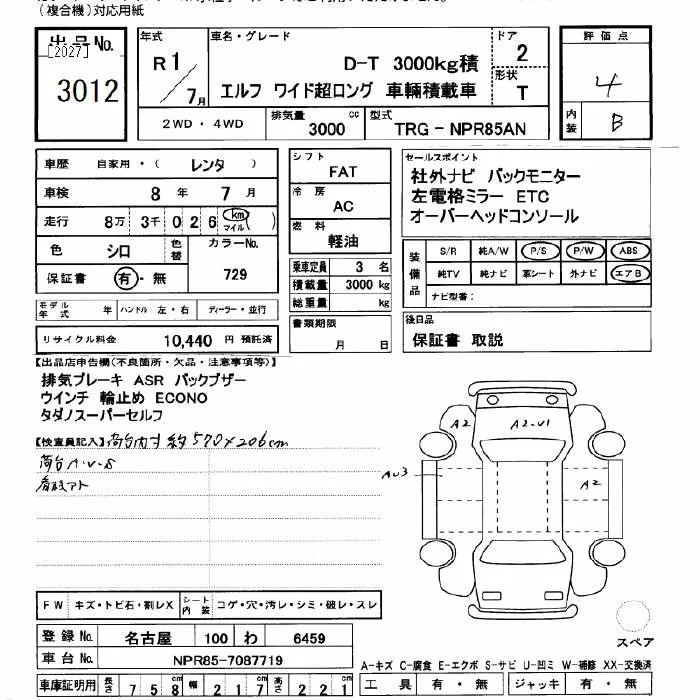 (複合機)対応用紙
出品No.
[2027]
3012
年式
R1/7月
車名・グレード
D-T 3000kg積
エルフ ワイド超ロング 車輛積載車
ドア
2
形状
T
評価点
4
内装
B
2WD・4WD
排気量
3000
cc
型式
TRG-NPR85AN
車歴 自家用・( レンタ )
車検 8年 7月
走行 8万 3千 0 2 6 km マイル( )
色 シロ 色替 カラーNo.
729
保証書 有・無
モデル年式 年 ハンドル 左・右 ディーラー・並行
リサイクル料金 10,440 円 預託済
シフト
FAT
冷房
AC
燃料
軽油
乗車定員 3 名
積載量 3000 kg
総重量 kg
書類期限
月 日
セールスポイント
社外ナビ バックモニター
左電格ミラー ETC
オーバーヘッドコンソール
装備品
S/R 純A/W P/S P/W ABS
純TV 純ナビ 革シート 外ナビ エアB
ナビ型番:
後日品
保証書 取説
【出品店申告欄(不良箇所・欠品・注意事項等)】
排気ブレーキ ASR バックブザー
ウインチ 輪止め ECONO
タダノスーパーセルフ
【検査員記入】荷台内寸約570×206cm
荷台A・U・S
看板アト
A2
A2-U1
AU3
A2
スペア
FW キズ・トビ石・割レX シート内装 コゲ・穴・汚レ・シミ・破レ・スレ
登録No. 名古屋 100 わ 6459
車台No. NPR85-7087719
車庫証明用 長さ 758 cm 幅 217 cm 高さ 221 cm
A-キズ C-腐食 E-エクボ S-サビ U-凹ミ W-補修 XX-交換済
工具 有・無 ジャッキ 有・無